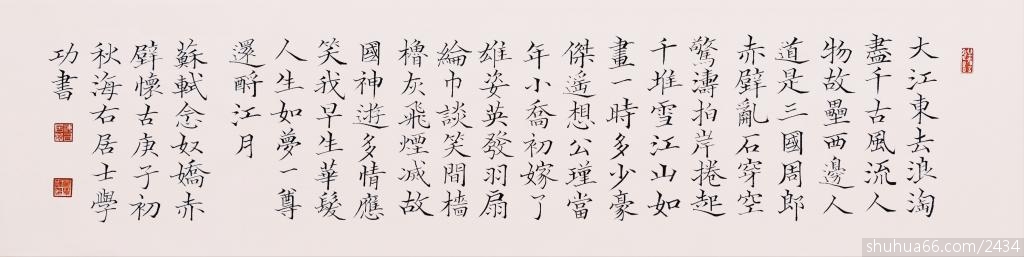 大江東去浪淘
盡千古風流人
物故壘西邊人
道是三國周郎
赤壁亂石穿空
驚濤拍岸捲起
千堆雪江山如
畫一時多少豪
傑遙想公瑾當
年小喬初嫁了
雄姿英發羽扇
綸巾談笑間檣
櫓灰飛煙滅故
國神遊多情應
笑我早生華髮
人生如夢一尊
還酹江月
蘇軾念奴嬌赤
壁懷古庚子初
秋海右居士學
功書
shuhua66.com/2434